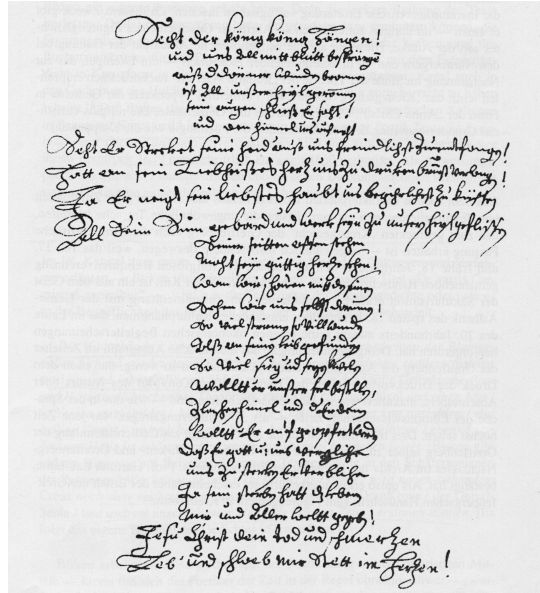 Secht der könig könig hangen!
und uns all mitt blutt besprenge
auß d dörner wunden bronnen
ist all unßer heyl geronnen
seine augen schliest Er sacht!
und den himel uns
Seht Er Strecket seine hend auß uns freindlichst zu entfangen!
hatt an sein Liebheißes hertz uns zu druken verlangen!
Ja Er neigt sein liebstes haubt uns zu küssen
All sein Sinn gebärd und werk seyn zu unserm heyl geflissen
Seiner seitten offen stehen
macht sein güttig hertze sehen!
wan wir schauen mitt den sinnen
Sehen wir uns selbst darinn!
So viel striemen so vill wunden
Alß an seinem leib gefunden
So viel sieg und segens
wollte er unßrer sel bestelln,
zwischen himel und d Erden
wollte Er auf geopfert werden
daß er gott und uns vergliche
uns zu sterken Er verbliche
Ja sein sterben hatt d leben
mir und aller weltt gegeben!
Jesu Christ dein Tod und schmertzen
Leb' und schweb mir Stett im Hertzen!